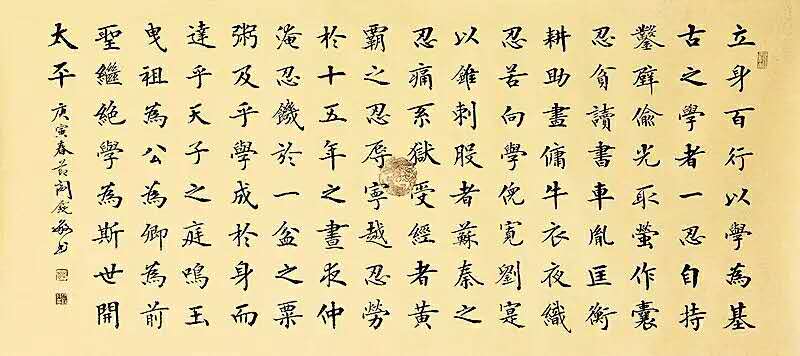 立身百行以學為基
古之學者一忍自持
鑿壁偷光取螢作囊
忍貧讀書車胤匡衡
耕助晝傭牛衣夜織
忍苦向學倪寬劉寔
以錐刺股者蘇秦之
忍痛系獄受經者黃
霸之忍辱寧越忍勞
於十五年之晝夜仲
淹忍饑於一盆之粟
粥及乎學成於身而
達乎天子之庭鳴玉
曳祖為公為卿為前
聖繼絕學為斯世開
太平
庚寅春